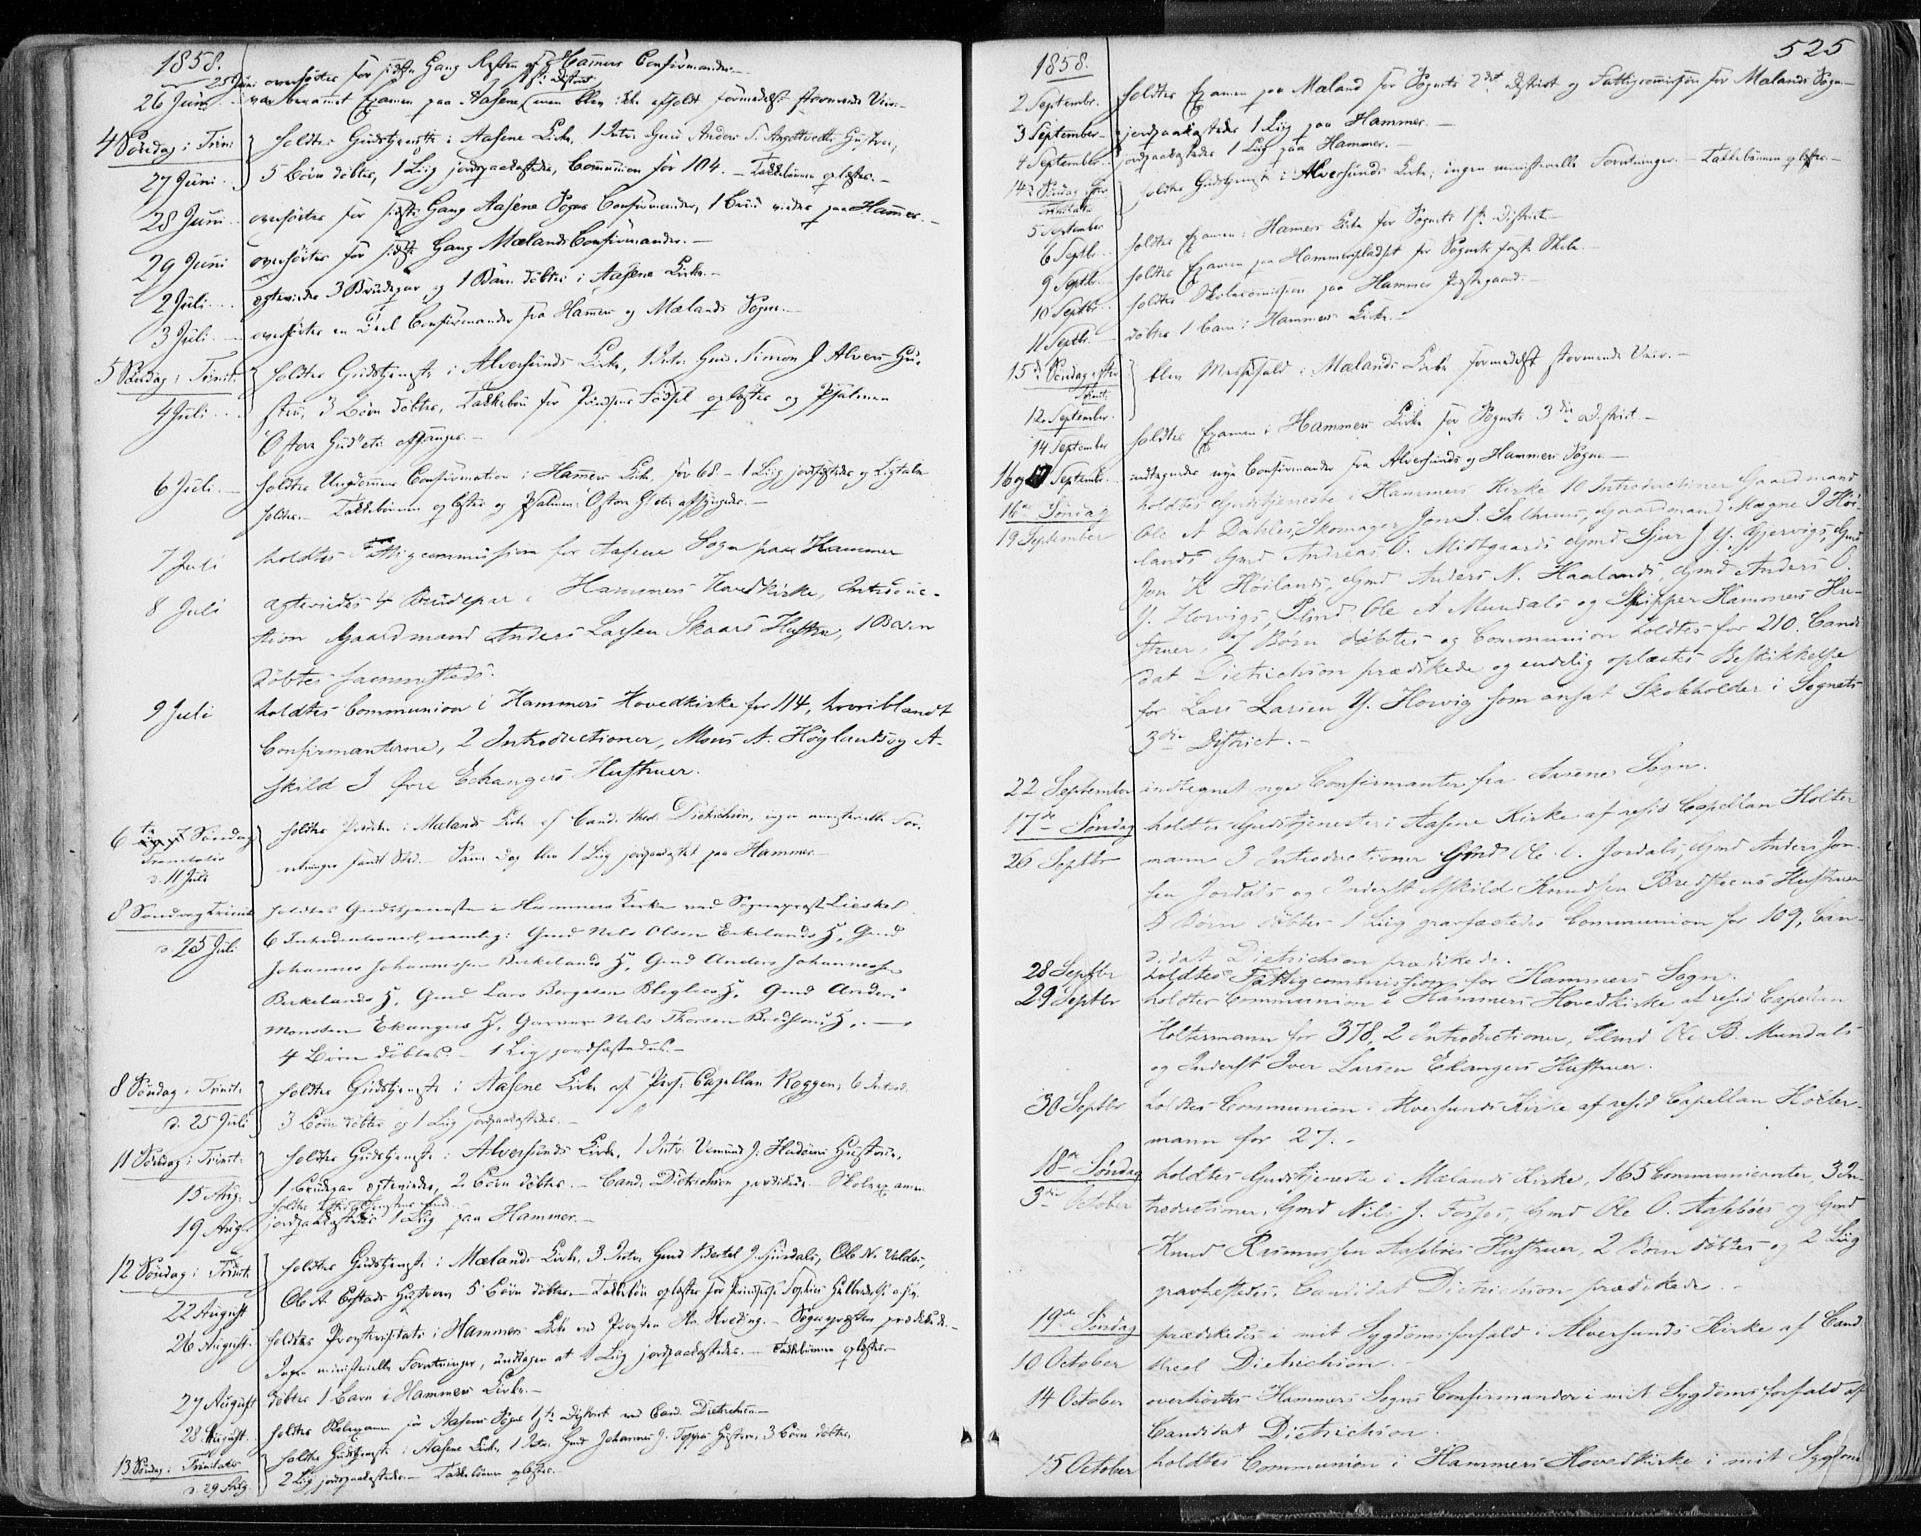 1858.
25 Juni overhørtes for sidste Gang Resten af Hammers Confirmander.
26 Juni var berammet Examen paa Aasene 1ste District, men blev ikke afholdt formedelst stormende Veir.
4 Søndag i Trinit. holdtes Gudstjeneste i Aasene Kirke, 1 Intr. Gmd Anders S. Hustru,
27 Juni 5 Børn døbtes, 1 Liig jordpaakastedes, Communion for 104. – Takkebønnen oplæstes. –
28 Juni overhørtes for sidste Gang Aasene Sogns Confirmander, 1 Brud viedes paa Hammer. –
29 Juni overhørtes for sidste Gang Mælands Confirmander. –
2 Juli egteviedes 3 Brudepar og 1 Barn døbtes i Aasene Kirke. –
3 Juli overhørtes en Deel Confirmander fra Hammers og Mælands Sogne. –
5 Søndag i Trinit. holdtes Gudstjeneste i Alversunds Kirke, 1 Intr. Gmd. Simon J. Alvers Hu-
4 Juli stru, 3 Børn døbtes, Takkebøn for Prindsens Fødsel oplæstes og Psalmen
"O store Gud" etc. afsunges. –
6 Juli holdtes Ungdommens Confirmation i Hammers Kirke for 68 – 1 Liig jordfæstedes og Ligtale
holdtes. – Takkebønnen oplæstes og Psalmen: O store G. etc. afsunges. –
7 Juli holdtes Fattigcommission for Aasene Sogn paa Hammer
8 Juli egteviedes 4 Brudepar i Hammers Hovedkirke, Introduc-
tion Gaardmand Anders Larsen Skaars Hustru, 1 Barn
døbtes sammesteds.
9 Juli holdtes Communion i Hammers Hovedkirke for 114, hvoriblandt
Confirmanterne, 2 Introductioner, Mons A. Høylands og A-
skild I Øvre Echangers Hustruer.
6te Søndag holdtes Præken i Mælands Kirke af Cand. theol. Dietrichson, ingen ministerielle For-
Trinitatis
d. 11 Juli retninger fandt Sted. Samme Dag blev 1 Liig jordpaakastet paa Hammer. –
8 Søndag Trinit. holdtes Gudstjeneste i Hammers Kirke ved Sogneprest
d. 25 Juli 6 Introductioner, nemlig: Gmd Nels Olsen Eikelands H, Gmd
Johannes Johannessen Birkelands H, Gmd Anders Johannesen
Birkelands H, Gmd Lars Bergesen H, Gmd Anders
Monsen Ekangers H, Nels Thorsen H,
4 Børn døbtes. – 1 Lig jordfæstedes. –
8 Søndag i Trinit. holdtes Gudstjeneste i Aasene Kirke af Pers. Capellan Koggen, 6 Introd.
d. 25 Juli 3 Børn døbtes og 1 Liig jordpaakastedes. –
11 Søndag i Trinit. holdtes Gudstjeneste i Alversunds Kirke, 1 Intr. Hustru,
15 Aug. 1 Brudepar egteviedes, 2 Børn døbtes. – Cand. Dietrichson prædikede. – Skolexamen
holdtes
19 Aug. jordpaakastedes 1 Liig paa Hammer. –
12 Søndag i Trinit. holdtes Gudstjeneste i Mælands Kirke, 3 Intr. Gmd Bertel
22 August Ole A. Hustruer, 5 Børn døbtes. – Takkebøn oplæstes for Prindsesse Sophies
26 August holdtes Provstevisitats i Hammers Kirke ved Provsten – Sognepræsten prædikede. –
Ingen ministerielle Forretninger, undtagen at 1 Liig jordpaakastedes. – Takkebønnen oplæstes –
27 August døbtes 1 Barn i Hammers Kirke. –
28 August holdtes Skolexamen for Aasene Sogns 1ste District ved Cand. Dietrichson –
13 Søndag i Trinitatis holdtes Gudstjeneste i Aasene Kirke, 1 Intr. Gmd Johannes J. Hustru, 3 Børn døbtes,
d. 29 Aug. 2 Liig jordpaakastedes – Takkebønnen oplæstes. –
525
1858.
2 September. holdtes Examen paa Mæland for Sognets 2det District og Fattigcommission for Mælands Sogn –
3 September jordpaakastedes 1 Liig paa Hammer. –
4 September. jordpaakastedes 1 Liig paa Hammer. –
14de Søndag efter holdtes Gudstjeneste i Alversunds Kirke; ingen ministerielle Forretninger. – Takkebønnen oplæstes. –
Trinitatis
5 September
6 Septbr. holdtes Examen i Hammers Kirke for Sognets 1ste District. –
9 Septbr. holdtes Examen paa Hammerspladset for Sognets faste Skole. –
10 Septbr holdtes Skolecommission paa Hammers Prestegaard. –
11 Septbr. døbtes 1 Barn i Hammers Kirke. –
15de Søndag efter blev Messefald i Mælands Kirke formedelst stormende Veir. –
Trinit.
12. September.
14 September holdtes Examen i Hammers Kirke for Sognets 3die District –
16 og 17 Septembr. indtegnedes nye Confirmander fra Alversunds og Hammers Sogne –
16de Søndag holdtes Gudstjeneste i Hammers Kirke 10 Introductioner Gaardmand
19 September Ole A Dahles, Skomager Jon J. Salhuus, Gaardmand Mogne I Høi-
lands Gmd Andreas O. Midtgaards Gmd Sjur J. Y. Gjervigs, Gmd
Jon K Høilands, Gmd Anders N. Haalands, Gmd Anders O.
Y. Horvigs, Plmd. Ole A Mundals og Skipper Hammers Hu-
struer, 7 Børn døbtes og Communion holdtes for 210. Candi
dat Dietrichson prædikede og endelig oplæstes Beskikkelse
for Lars Larsen Y. Horvig som ansat Skoleholder i Sognets
3die District. –
22 September indtegnet nye Confirmanter fra Aasene Sogn.
17de Søndag holdtes Gudstjeneste i Aasene Kirke af resid Capellan Holter
26 Septbr mann 3 Introductioner Gmd Ole O. Jordals, Gmd Anders Jon-
sen Jordals og Inderst Askild Knudsen Bredsteens Hustruer
8 Børn døbtes 1 Liig gravfæstedes Communion for 109, Can-
didat Dietrichson prædikede.
28 Septbr holdtes Fattigcommission for Hammers Sogn.
29 Septbr holdtes Communion i Hammers Hovedkirke af resid Capellan
Holtermann for 378, 2 Introductioner, Plmd Ole B. Mundals
og Inderst Iver Larsen Ekangers Hustruer.
30 Septbr holdtes Communion i Alversunds Kirke af resid Capellan Holter-
mann for 27. –
18de Søndag holdtes Gudstjeneste i Mælands Kirke, 165 Communicanter, 3 In-
3die October troductioner, Gmd Nils J. Fosses, Gmd Ole O. Aasebøes og Gmd
Knud Rasmussen Aasebøes Hustruer, 2 Børn døbtes og 2 Liig
gravfestedes. Candidat Dietrichson prædikede. –
19de Søndag prædikedes i mit Sygdomsforfald i Alversunds Kirke af Cand
10 October theol Dietrichson. –
14 October overhørtes Hammers Sogns Confirmander i mit Sygdomsforfald af
Candidat Dietrichson.
15 October holdtes Communion i Hammers Hovedkirke i mit Sygdoms